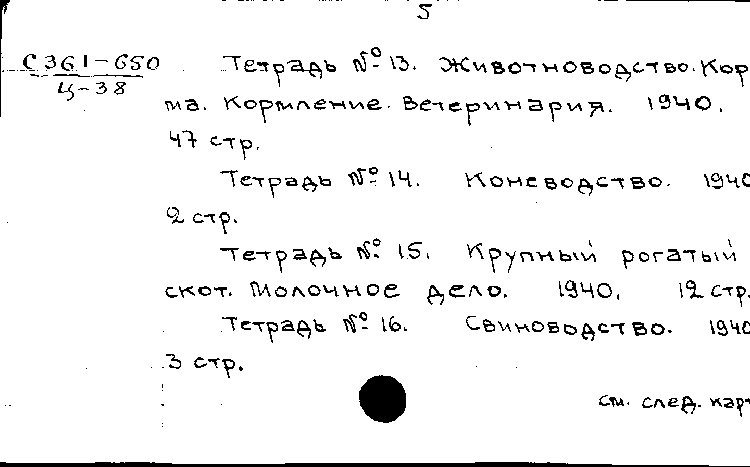 5
С361-650 Тетрадь № 13. Животноводство. Кор
Ц-38 ма. Кормление. Ветеринария. 1940.
47 стр.
Тетрадь № 14. Коневодство. 1940
2 стр.
Тетрадь № 15. Крупный рогатый
скот. Молочное дело. 1940. 12 стр.
Тетрадь № 16. Свиноводство. 1940
3 стр.
см. след. карт